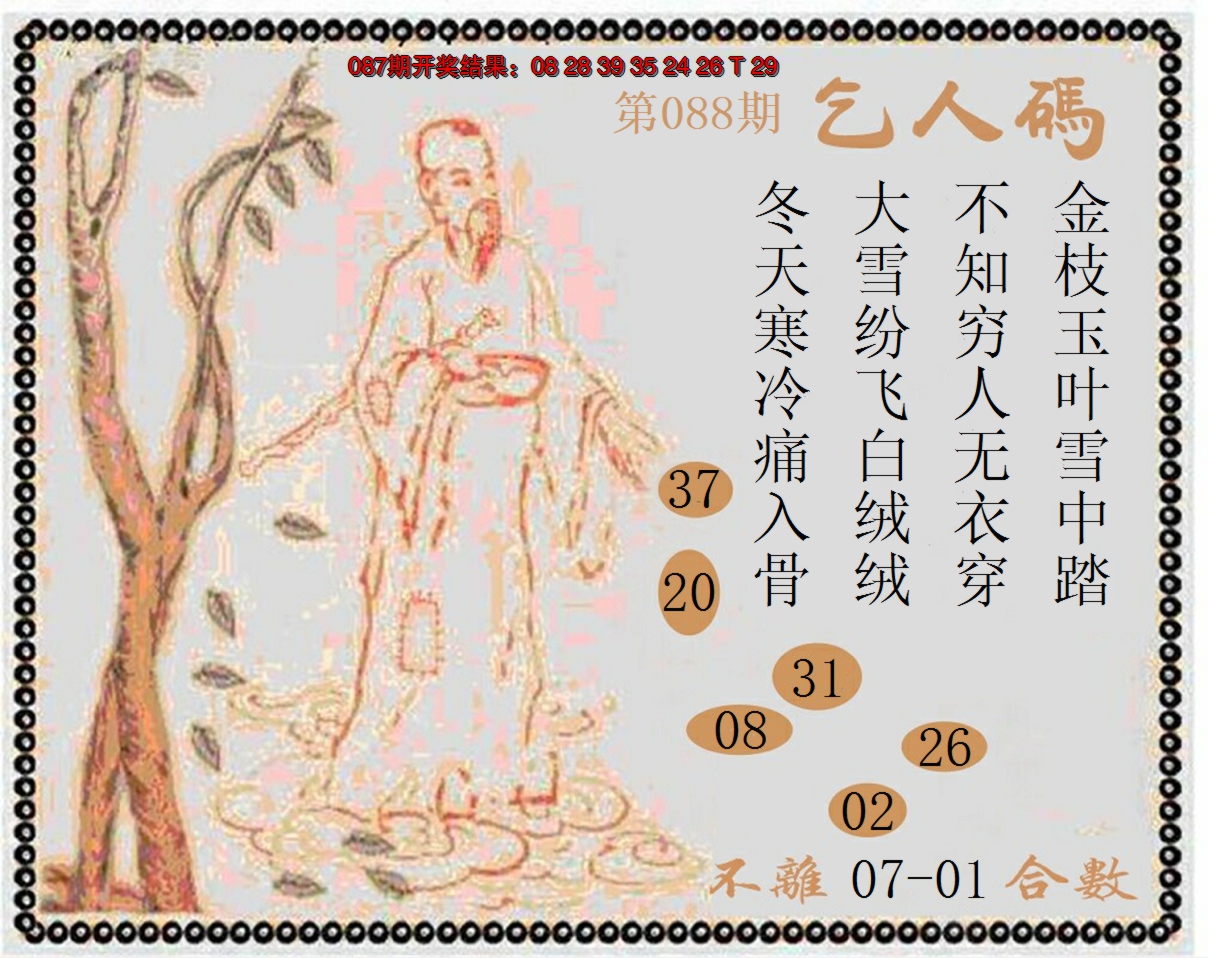 087期开奖结果：08 28 39 35 24 26 T 29
第088期 乞人碼
金枝玉叶雪中踏
不知穷人无衣穿
大雪纷飞白绒绒
冬天寒冷痛入骨
37
20
31
08
26
02
不離 07-01 合數